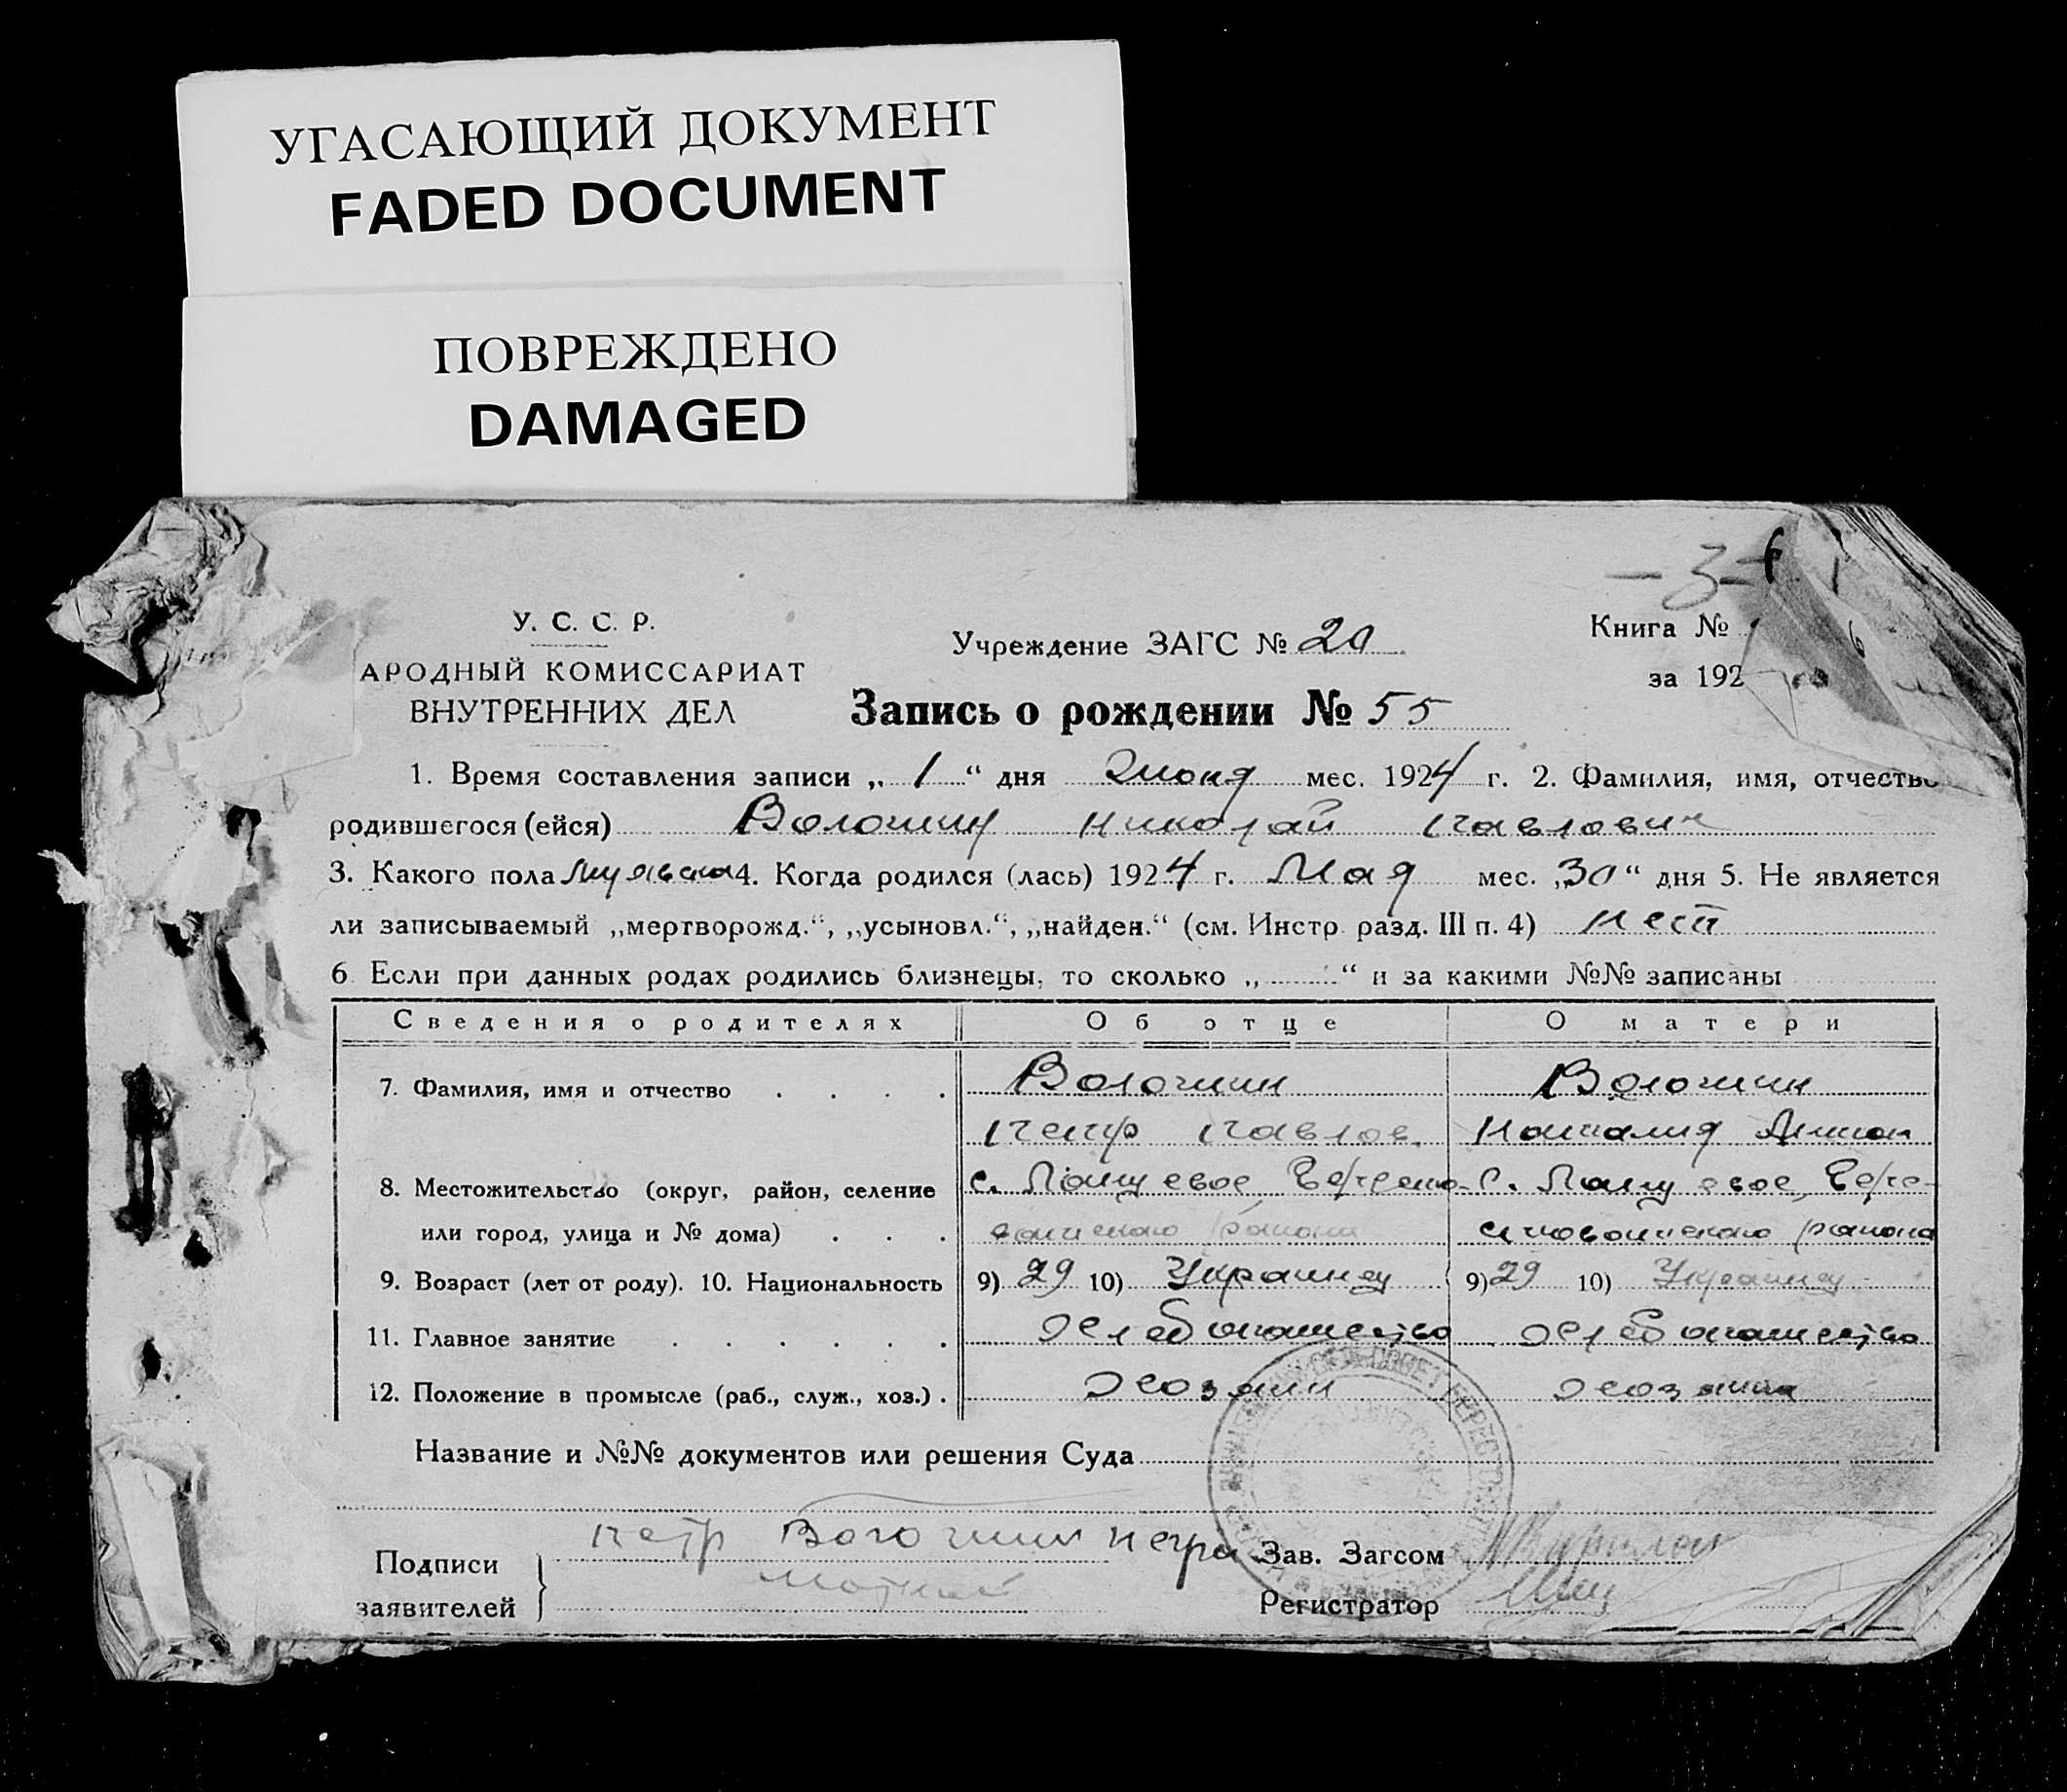 УГАСАЮЩИЙ ДОКУМЕНТ
FADED DOCUMENT
ПОВРЕЖДЕНО
DAMAGED
-3-
У. С. С. Р.
АРОДНЫЙ КОМИССАРИАТ
ВНУТРЕННИХ ДЕЛ
Учреждение ЗАГС № 20
Книга №
за 192
Запись о рождении № 55
1. Время составления записи „ 1 “ дня Июня мес. 1924 г. 2. Фамилия, имя, отчество
родившегося (ейся) Волошин Николай Павлович
3. Какого пола Мужска 4. Когда родился (лась) 1924 г. Мая мес. „30“ дня 5. Не является
ли записываемый „мертворожд.“, „усыновл.“, „найден.“ (см. Инстр. разд. III п. 4) нет
6. Если при данных родах родились близнецы, то сколько „ “ и за какими №№ записаны
Сведения о родителях Об отце О матери
7. Фамилия, имя и отчество Волошин Волошин
Петр Павлов. Наталия
8. Местожительство (округ, район, селение с. с.
или город, улица и № дома) района района
9. Возраст (лет от роду). 10. Национальность 9) 29 10) Украинец 9) 29 10) Украинец
11. Главное занятие Хлебопашество Хлебопашество
12. Положение в промысле (раб., служ., хоз.) Хозяин Хозяин
Название и №№ документов или решения Суда
Подписи заявителей петр Волошин
Зав. Загсом
Регистратор